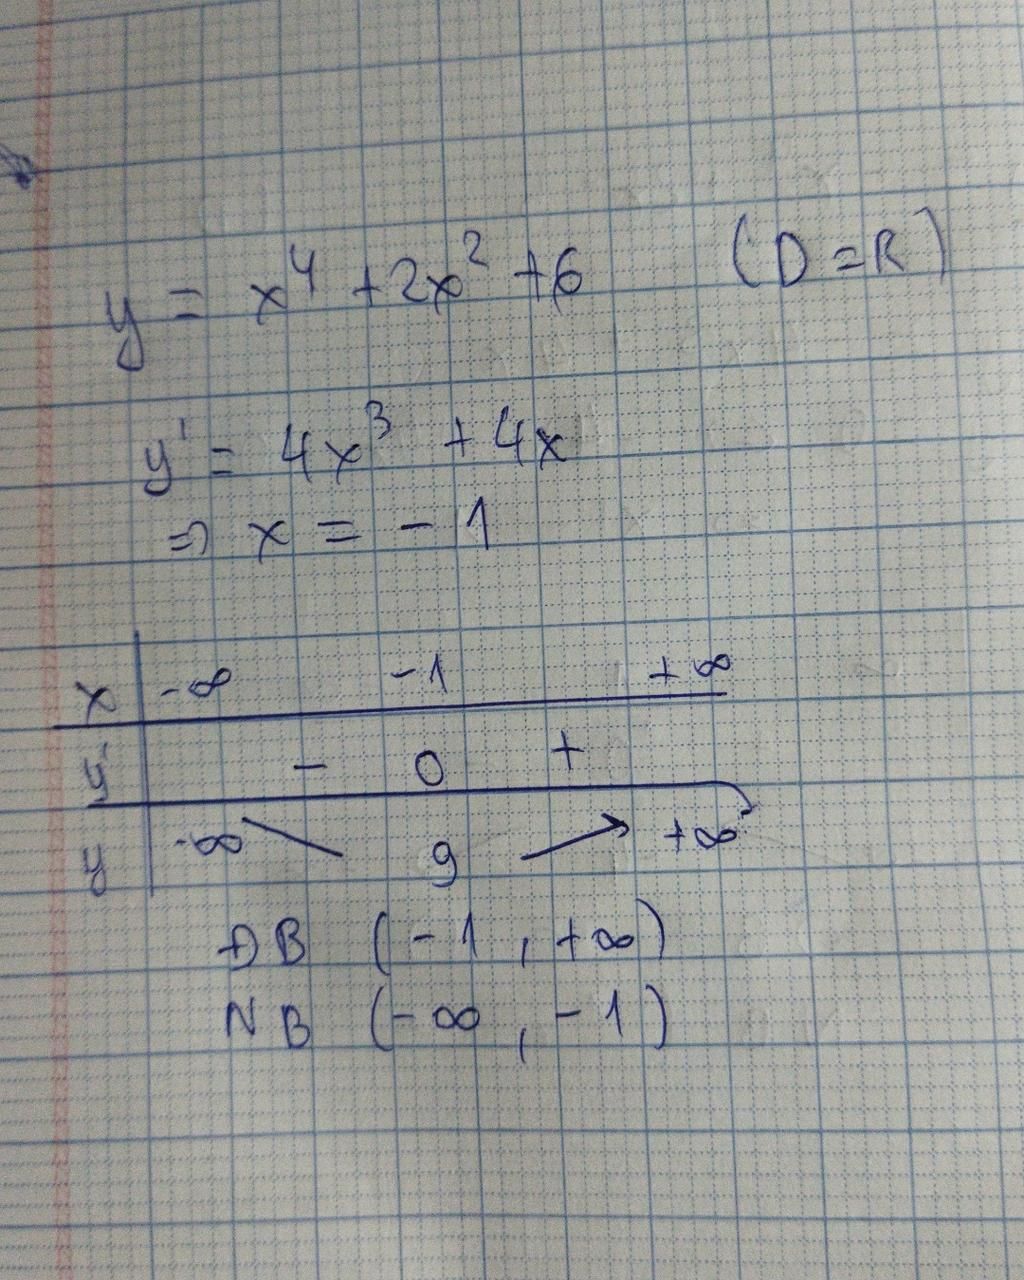 y = x⁴ + 2x² + 6 (D = R)
y' = 4x³ + 4x
⇒ x = - 1
x -∞ -1 +∞
y' - 0 +
y -∞ 9 +∞
ĐB (-1, +∞)
NB (-∞, -1)